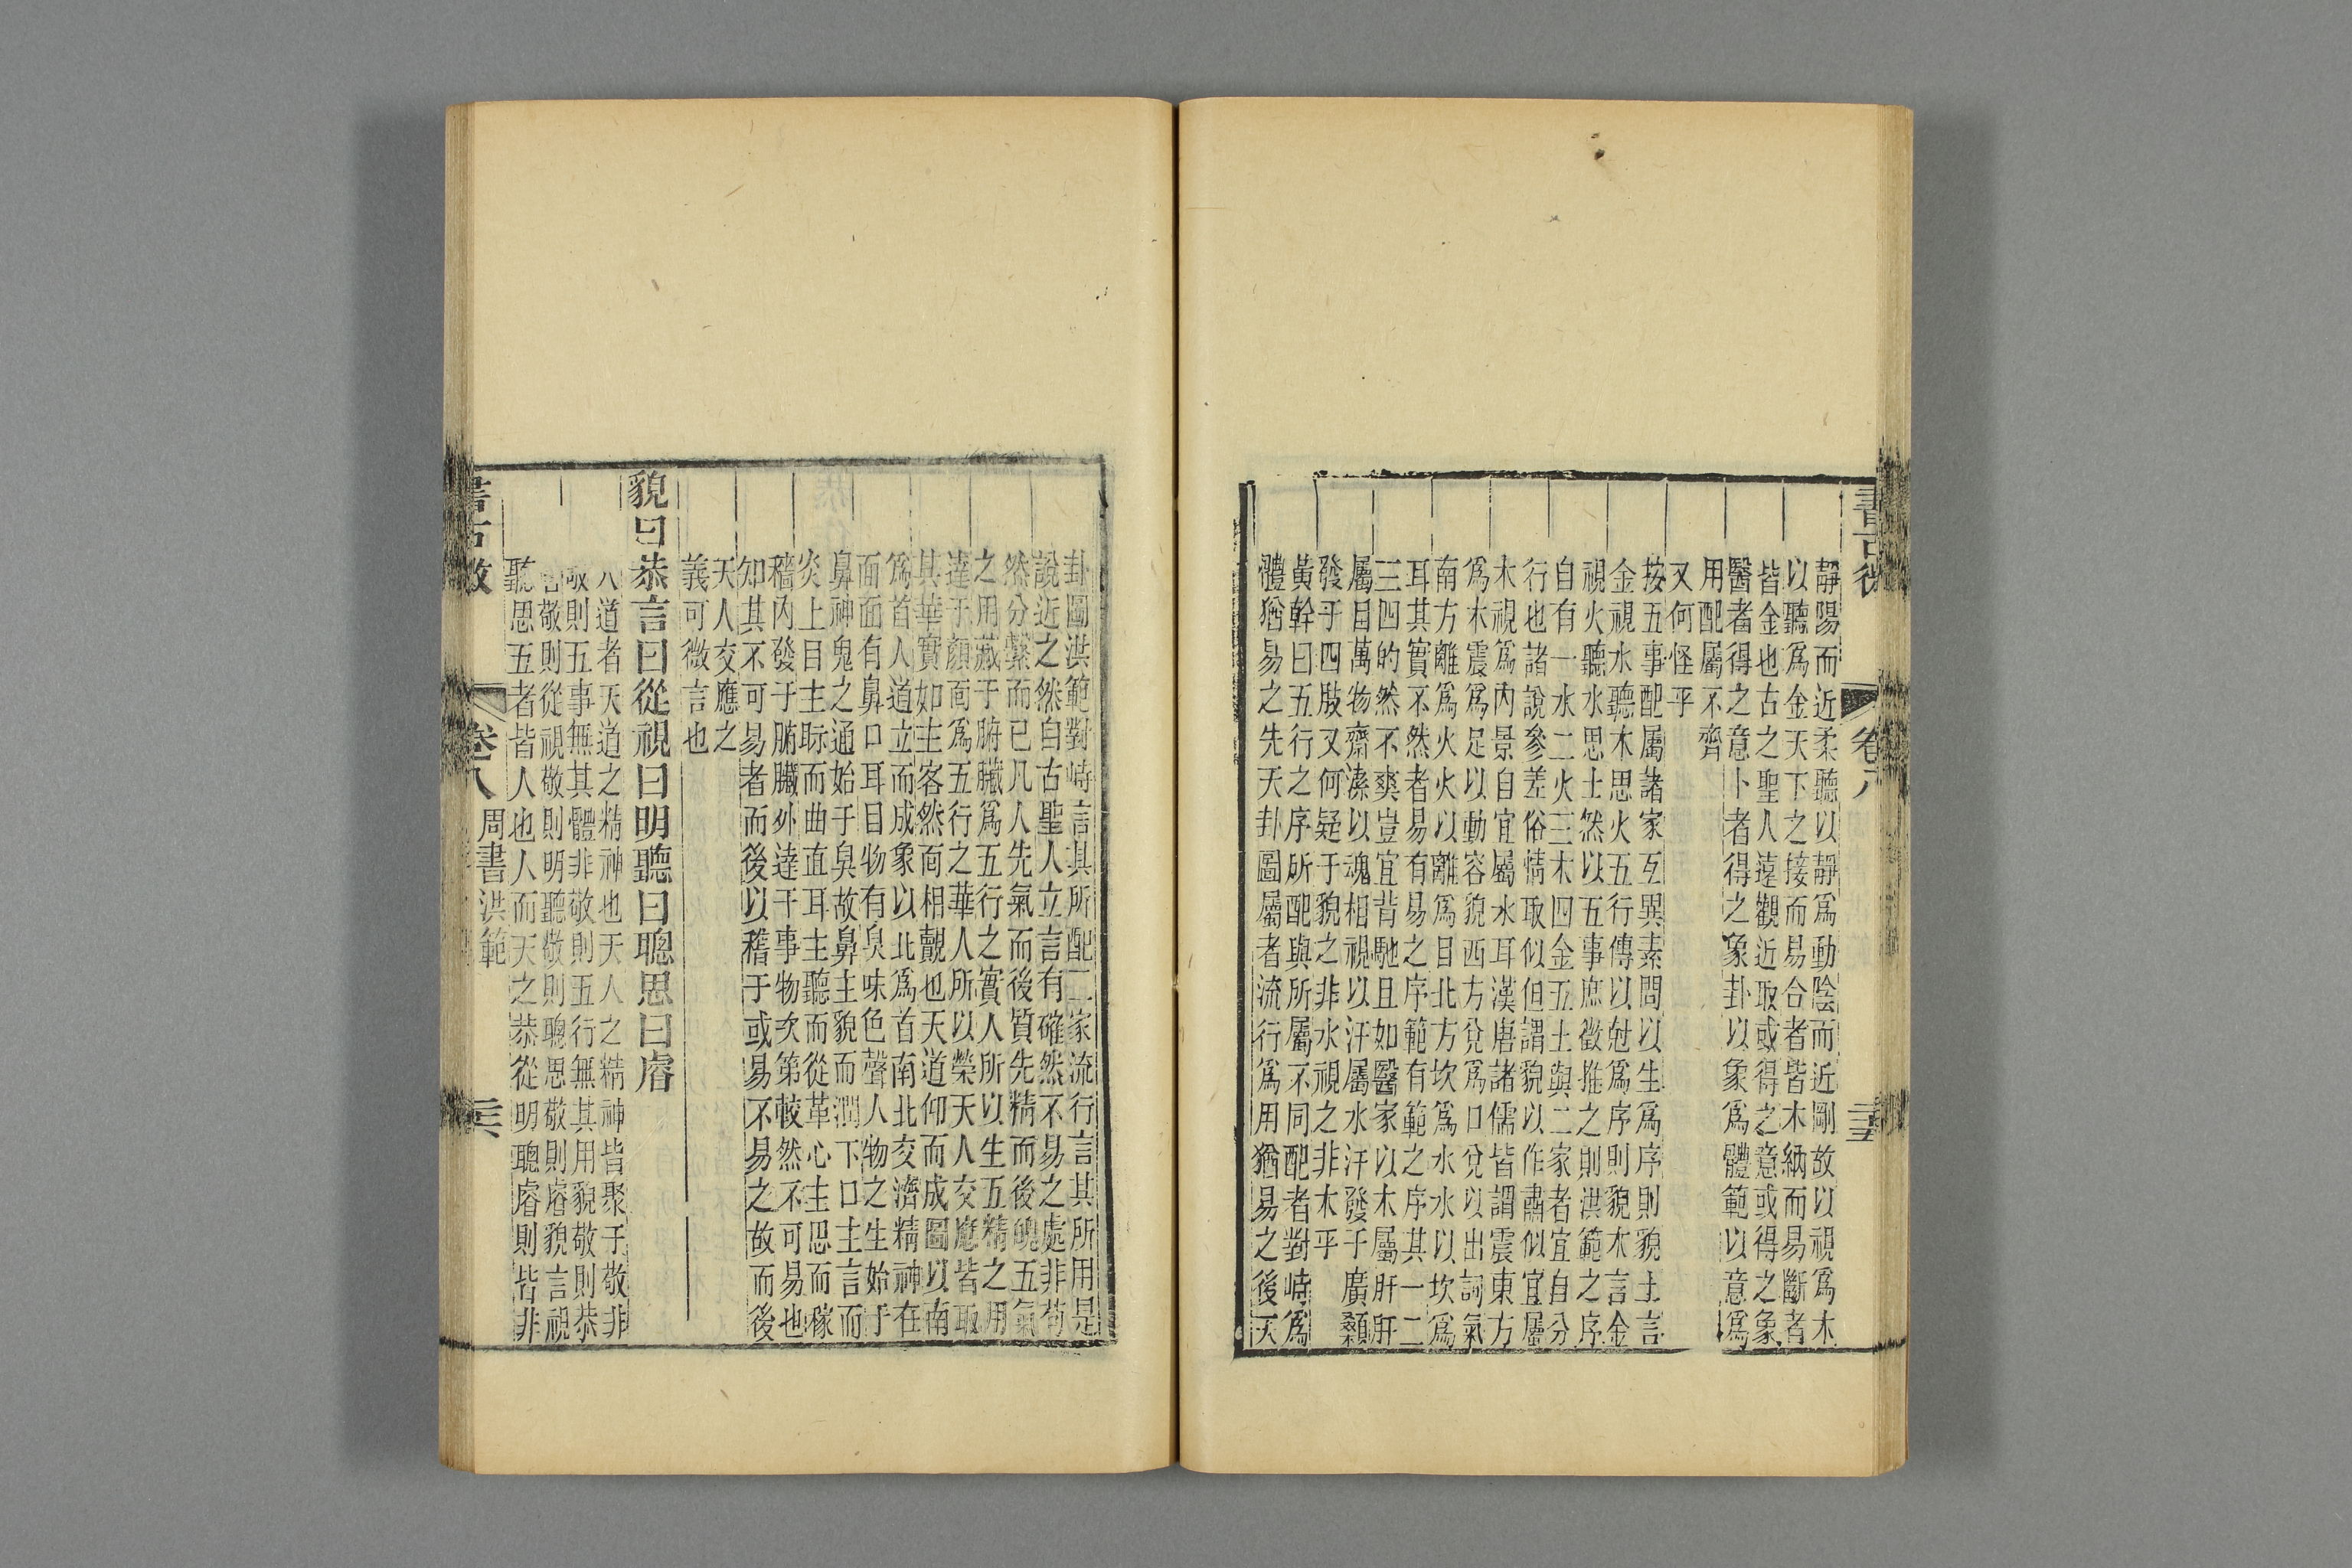 靜陽而近柔聽以靜爲動陰而近剛故以視爲木
以聽爲金天下之接而易合者皆木納而易斷者
皆金也古之聖人遠觀近取或得之意或得之象
醫者得之意卜者得之象卦以象爲體範以意爲
用配屬不齊
又何怪乎
按五事配屬諸家互異素問以生爲序則貌土言
金視水聽木思火五行傳以尅爲序則貌木言金
視火聽水思土然以五事庶徵推之則洪範之序
自有一水二火三木四金五土與二家者宜自分
行也諸說參差俗情取似但謂貌以作肅似宜屬
木視爲内景自宜屬水耳漢唐諸儒皆謂震東方
爲木震爲足以動容貌西方兌爲口兌以出詞氣
南方離爲火火以離爲目北方坎爲水水以坎爲
耳其實不然者易有易之序範有範之序其一二
三四的然不爽豈宜背馳且如醫家以木屬肝肝
屬目萬物齋潔以魂相視以汗屬水汗發于廣顙
發乎四肢又何疑于貌之非水視之非木乎
黃幹曰五行之序所配與所屬不同配者對峙爲
體猶易之先天卦圖屬者流行爲用猶易之後天
書古微
卷八
卦圖洪範對峙言其所配二家流行言其所用是
說近之然自古聖人立言有確然不易之處非苟
然分繫而已凡人先氣而後質先精而後魄五氣
之用藏于腑臟爲五行之實人所以生五精之用
達于顏面爲五行之華人所以榮天人交應皆取
其華實如主客然面相觀也天道仰而成圖以南
爲首人道立而成象以北爲首南北交濟精神在
面面有鼻口耳目物有臭味色聲人物之生始于
鼻神鬼之通始于臭故鼻主貌而潤下口主言而
炎上目主眎而曲直耳主聽而從革心主思而稼
穡内發于腑臟外達于事物次第較然不可易也
知其不可易者而後以稽于或易不易之故而後
天人交應之
義可微言也
貌曰恭言曰從視曰明聽曰聰思曰睿
人道者天道之精神也天人之精神皆聚于敬非
敬則五事無其體非敬則五行無其用貌敬則恭
言敬則從視敬則明聽敬則聰思敬則睿貌言視
聽思五者皆人也人而天之恭從明聰睿則皆非
書古微
卷八
周書洪範